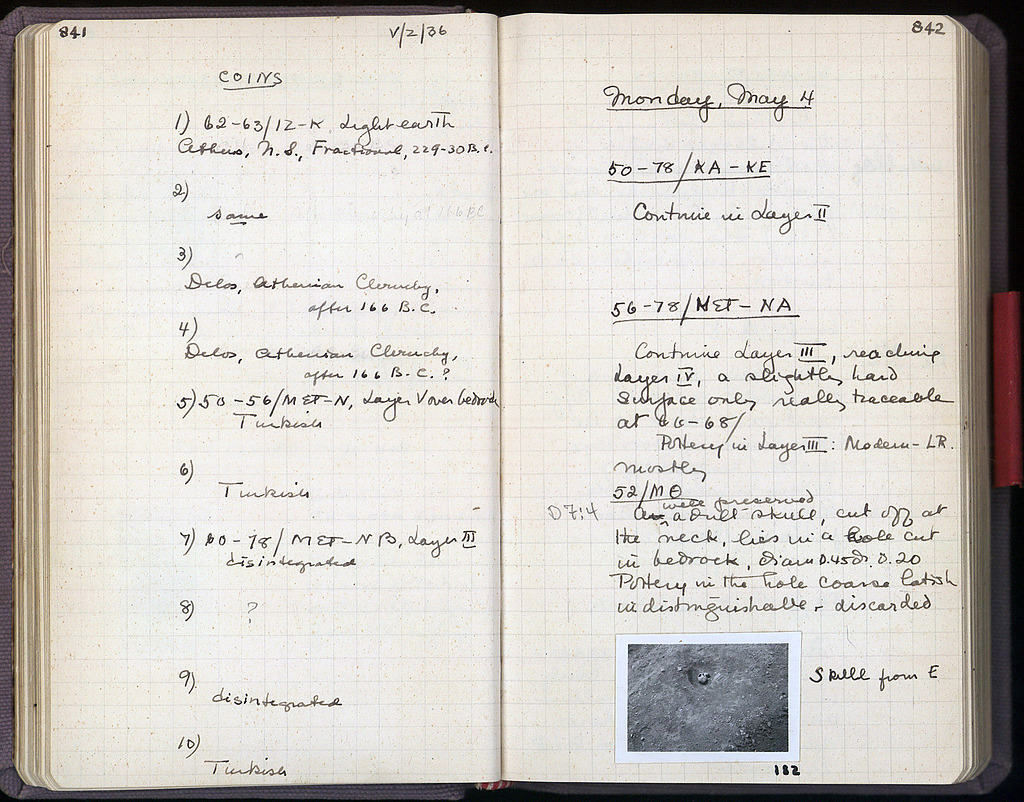 841
V/2/36
COINS
1) 62-63/IZ-K Light earth
Athens, N.S., Fractional, 229-30 B.C.
2)
same
3)
Delos, Athenian Cleruchy,
after 166 B.C.
4)
Delos, Athenian Cleruchy,
after 166 B.C.?
5) 50-56/MΣT-N, Layer V over bedrock
Turkish
6)
Turkish
7) 60-78/MΣT-NB, Layer III
disintegrated
8) ?
9)
disintegrated
10)
Turkish
842
Monday, May 4
50-78/KA-KE
Continue in Layer II
56-78/MΣT-NA
Continue Layer III, reaching
Layer IV, a slightly hard
surface only really traceable
at 66-68/
Pottery in Layer III: Modern-LR.
mostly
52/MΘ
well preserved
D7:4
An adult skull, cut off at
the neck, lies in a hole cut
in bedrock, diam 0.45 d. 0.20
Pottery in the hole coarse latish
indistinguishable - discarded
Skull from E
182